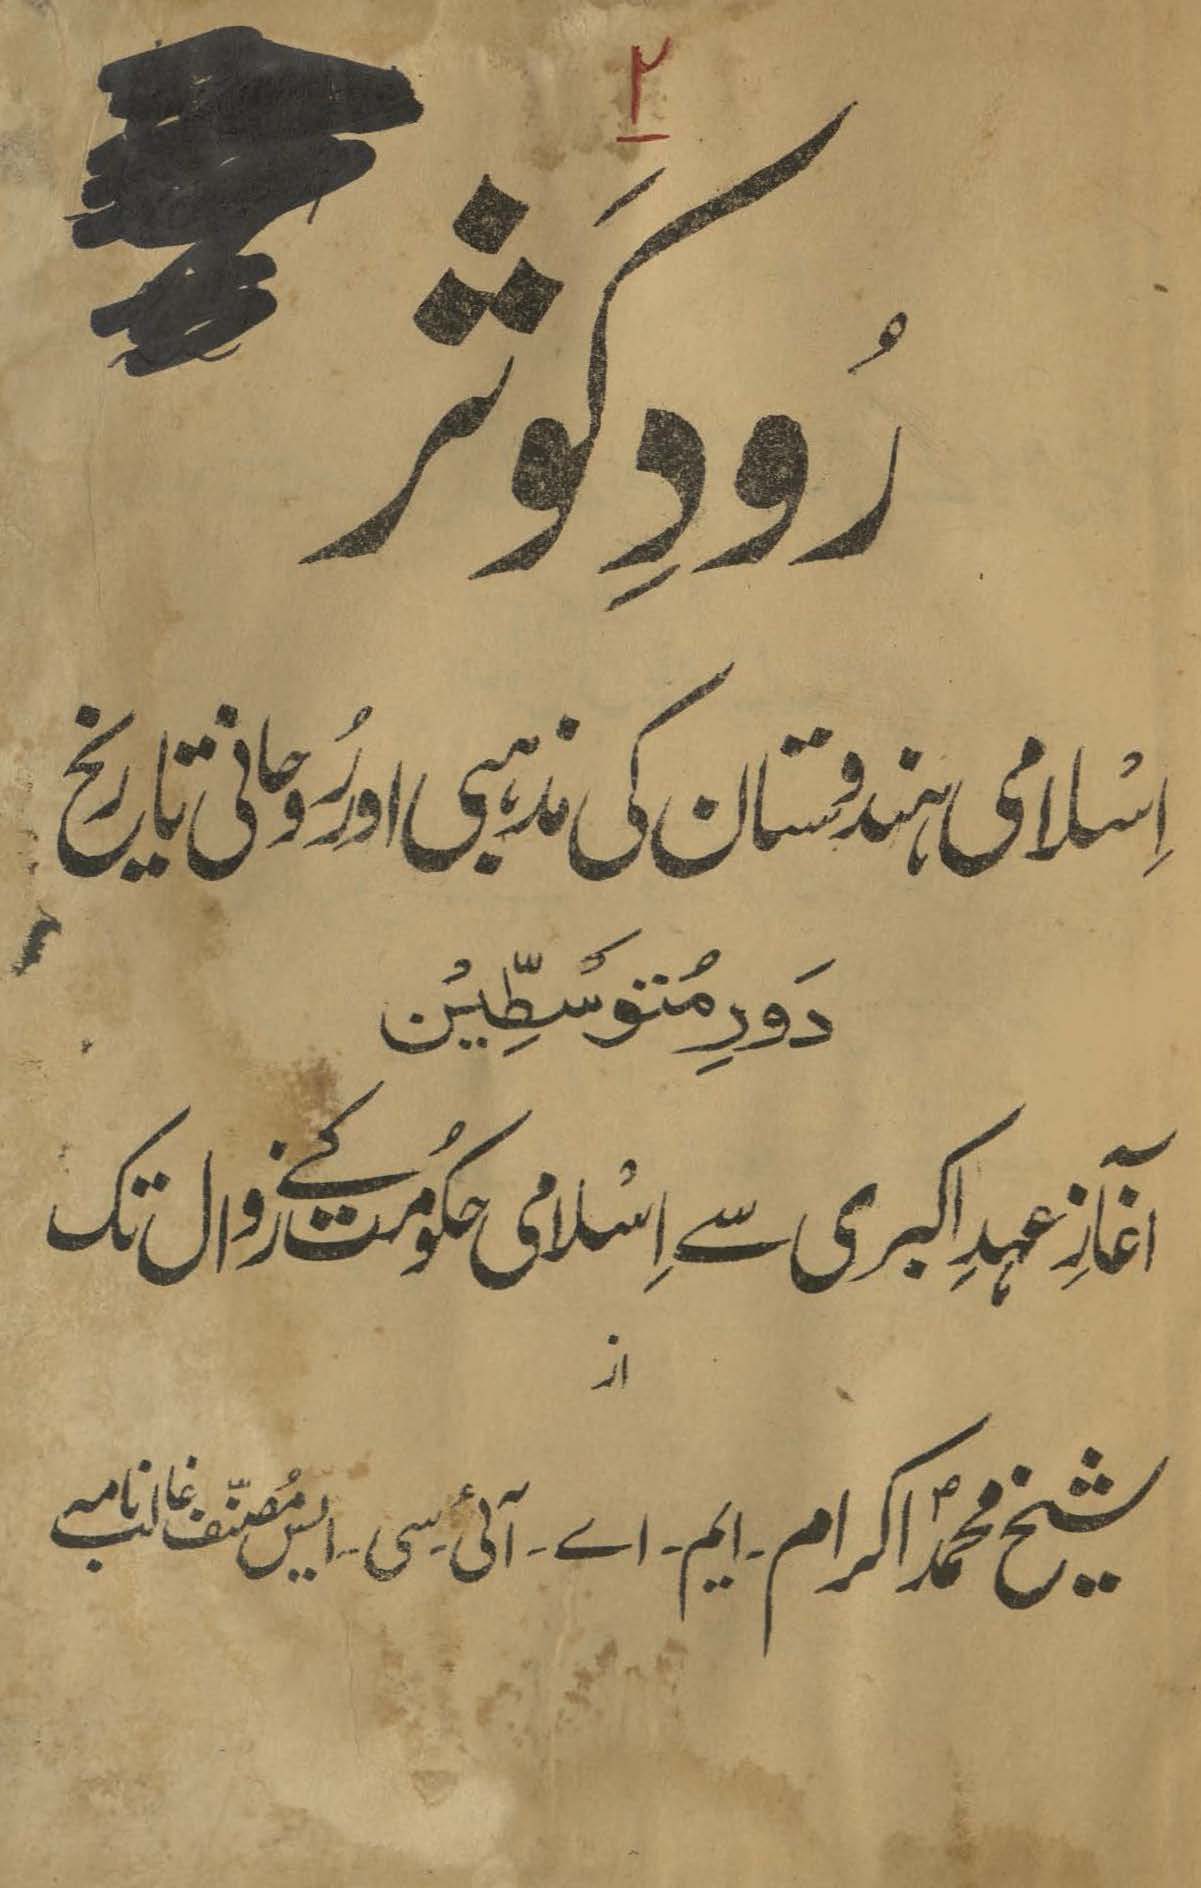 ۲
رُودِ کَوثر
اِسْلامی ہندوستان کی مذہبی اور رُوحانی تاریخ
دَورِ مُتَوسِّطِیْن
آغازِ عہدِ اکبری سے اِسْلامی حکُومت کے زوال تک
از
شیخ محمد اکرام۔ ایم۔ اے۔ آئی۔ سی۔ ایس مُصنّف غالب نامہ